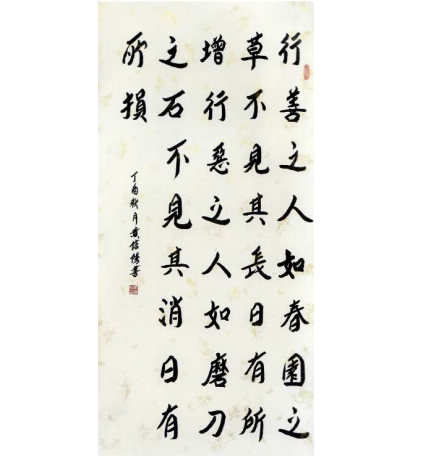 行善之人如春園之
草不見其長日有所
增行惡之人如磨刀
之石不見其消日有
所損
丁酉秋月